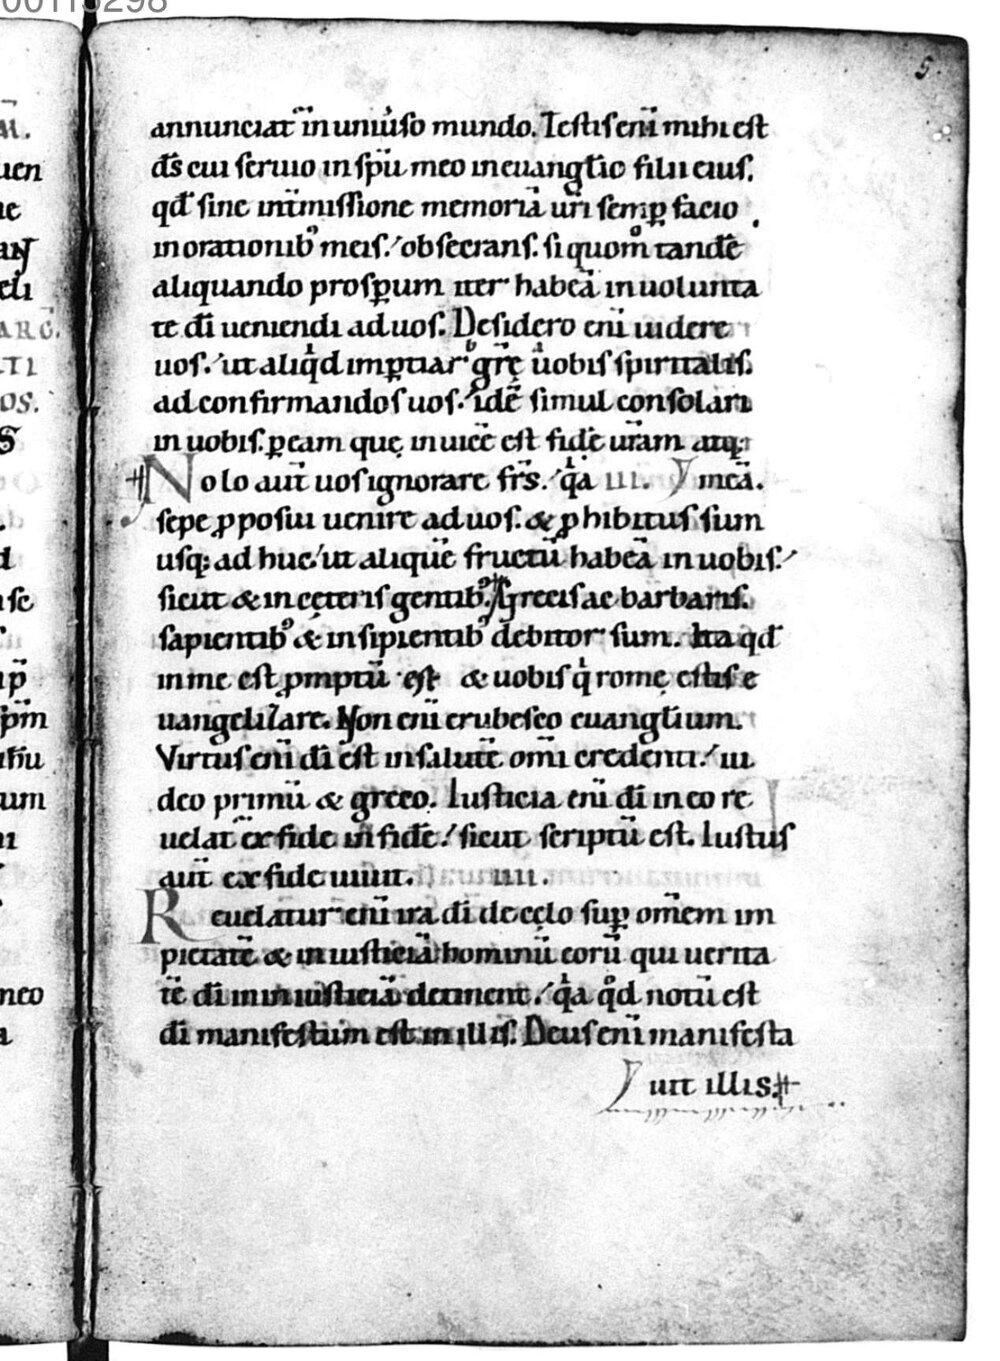 00113298
5.
annunciat̄ in uniu̾so mundo. Testis eni̅ mihi est
d̅s cui seruio in sp̅u meo in euanglio̅ filii eius.
qd̅ sine int̅missione memoria̅ ur̅i semꝑ facio
in orationib᷒ meis./ obsecrans. si quom̊ tande̅
aliquando prosꝑum iter habea̅ in uolunta
te di̅ ueniendi ad uos. Desidero eni̅ uidere
uos./ ut aliqͥd imꝑtiar gr̅ę uobis spiritalis.
ad confirmandos uos./ ide̅ simul consolari
in uobis. ꝑ eam quę inuice̅ est fide̅ ur̅am atq;
Nolo aut̅ uos ignorare fr̅s./ qͣa iii. mea̅.
sepe ꝓposui uenire ad uos. & ꝓhibitus sum
usq; ad huc./ ut alique̅ fructu̅ habea̅ in uobis./
sicut & in cęteris gentib᷒. Grecis ac barbaris.
sapientib᷒ & insipientib᷒ debitor sum. Ita qd̅
in me est ꝓmptu̅ est & uobis qͥ romę estis e
uangelizare. Non eni̅ erubesco euangl̅ium.
Virtus eni̅ di̅ est in salute̅ omi̅ credenti./ iu
deo primu̅ & greco. Iusticia eni̅ di̅ in eo re
uelat̄ ex fide in fide̅./ sicut scriptu̅ est. Iustus
aut̅ ex fide uiuit. iiii.
Reuelatur eni̅ ira di̅ de cęlo suꝑ om̅em im
pietate̅ & iniusticia̅ hominu̅ eoru̅ qui uerita
te̅ di̅ in iniusticia̅ detinent./ qͣa qͦd notu̅ est
di̅ manifestum est in illis. Deus eni̅ manifesta
uit illis.